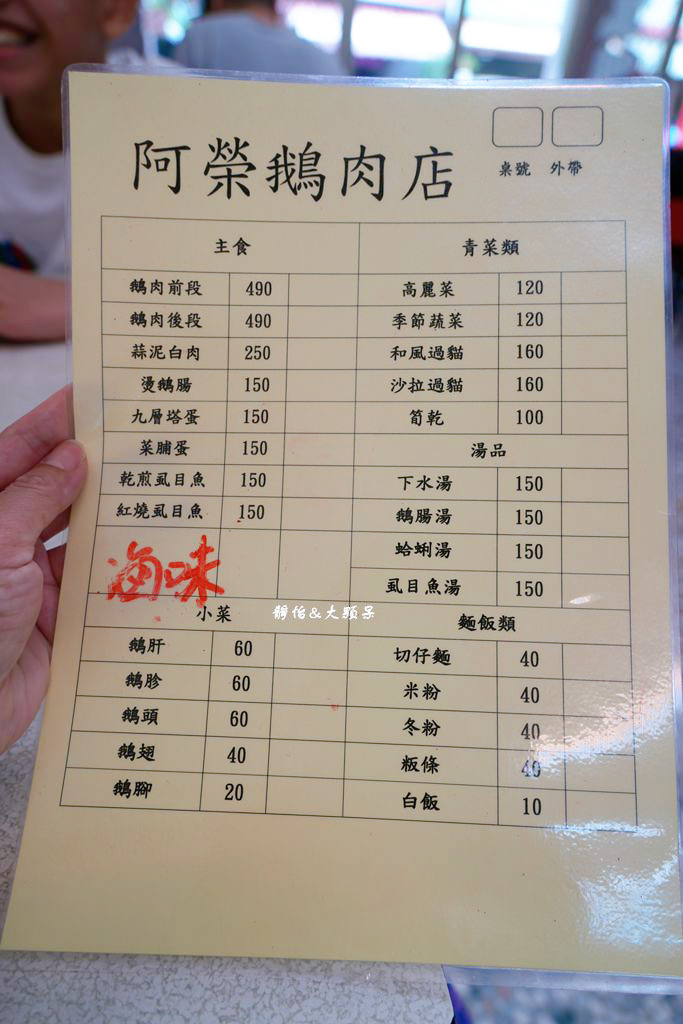 桌號 外帶
阿榮鵝肉店
主食 青菜類
鵝肉前段 490 高麗菜 120
鵝肉後段 490 季節蔬菜 120
蒜泥白肉 250 和風過貓 160
燙鵝腸 150 沙拉過貓 160
九層塔蛋 150 筍乾 100
菜脯蛋 150 湯品
乾煎虱目魚 150 下水湯 150
紅燒虱目魚 150 鵝腸湯 150
滷味 蛤蜊湯 150
虱目魚湯 150
靜怡&大顆呆
小菜 麵飯類
鵝肝 60 切仔麵 40
鵝胗 60 米粉 40
鵝頭 60 冬粉 40
鵝翅 40 粄條 40
鵝腳 20 白飯 10